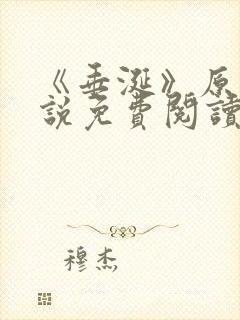 《垂涎》原
說免費閱讀
穆杰